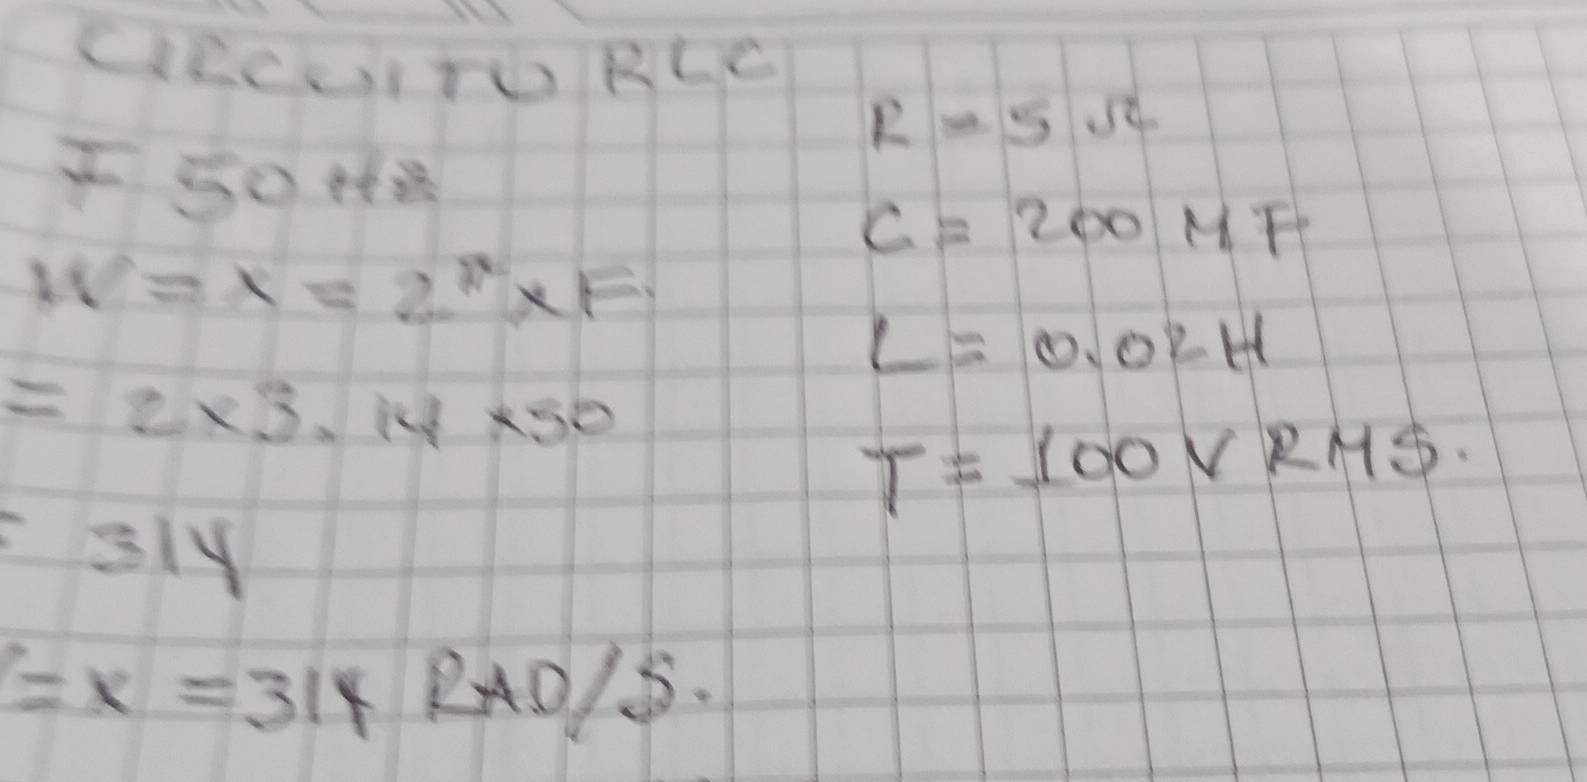 CIRCUITO RLC
F 50 HZ
W = X = 2π x F.
= 2 x 3.14 x 50
= 314
= X = 314 RAD/S.
R = 5 Ω
C = 200 MF
L = 0.02 H
T = 100 V RMS.